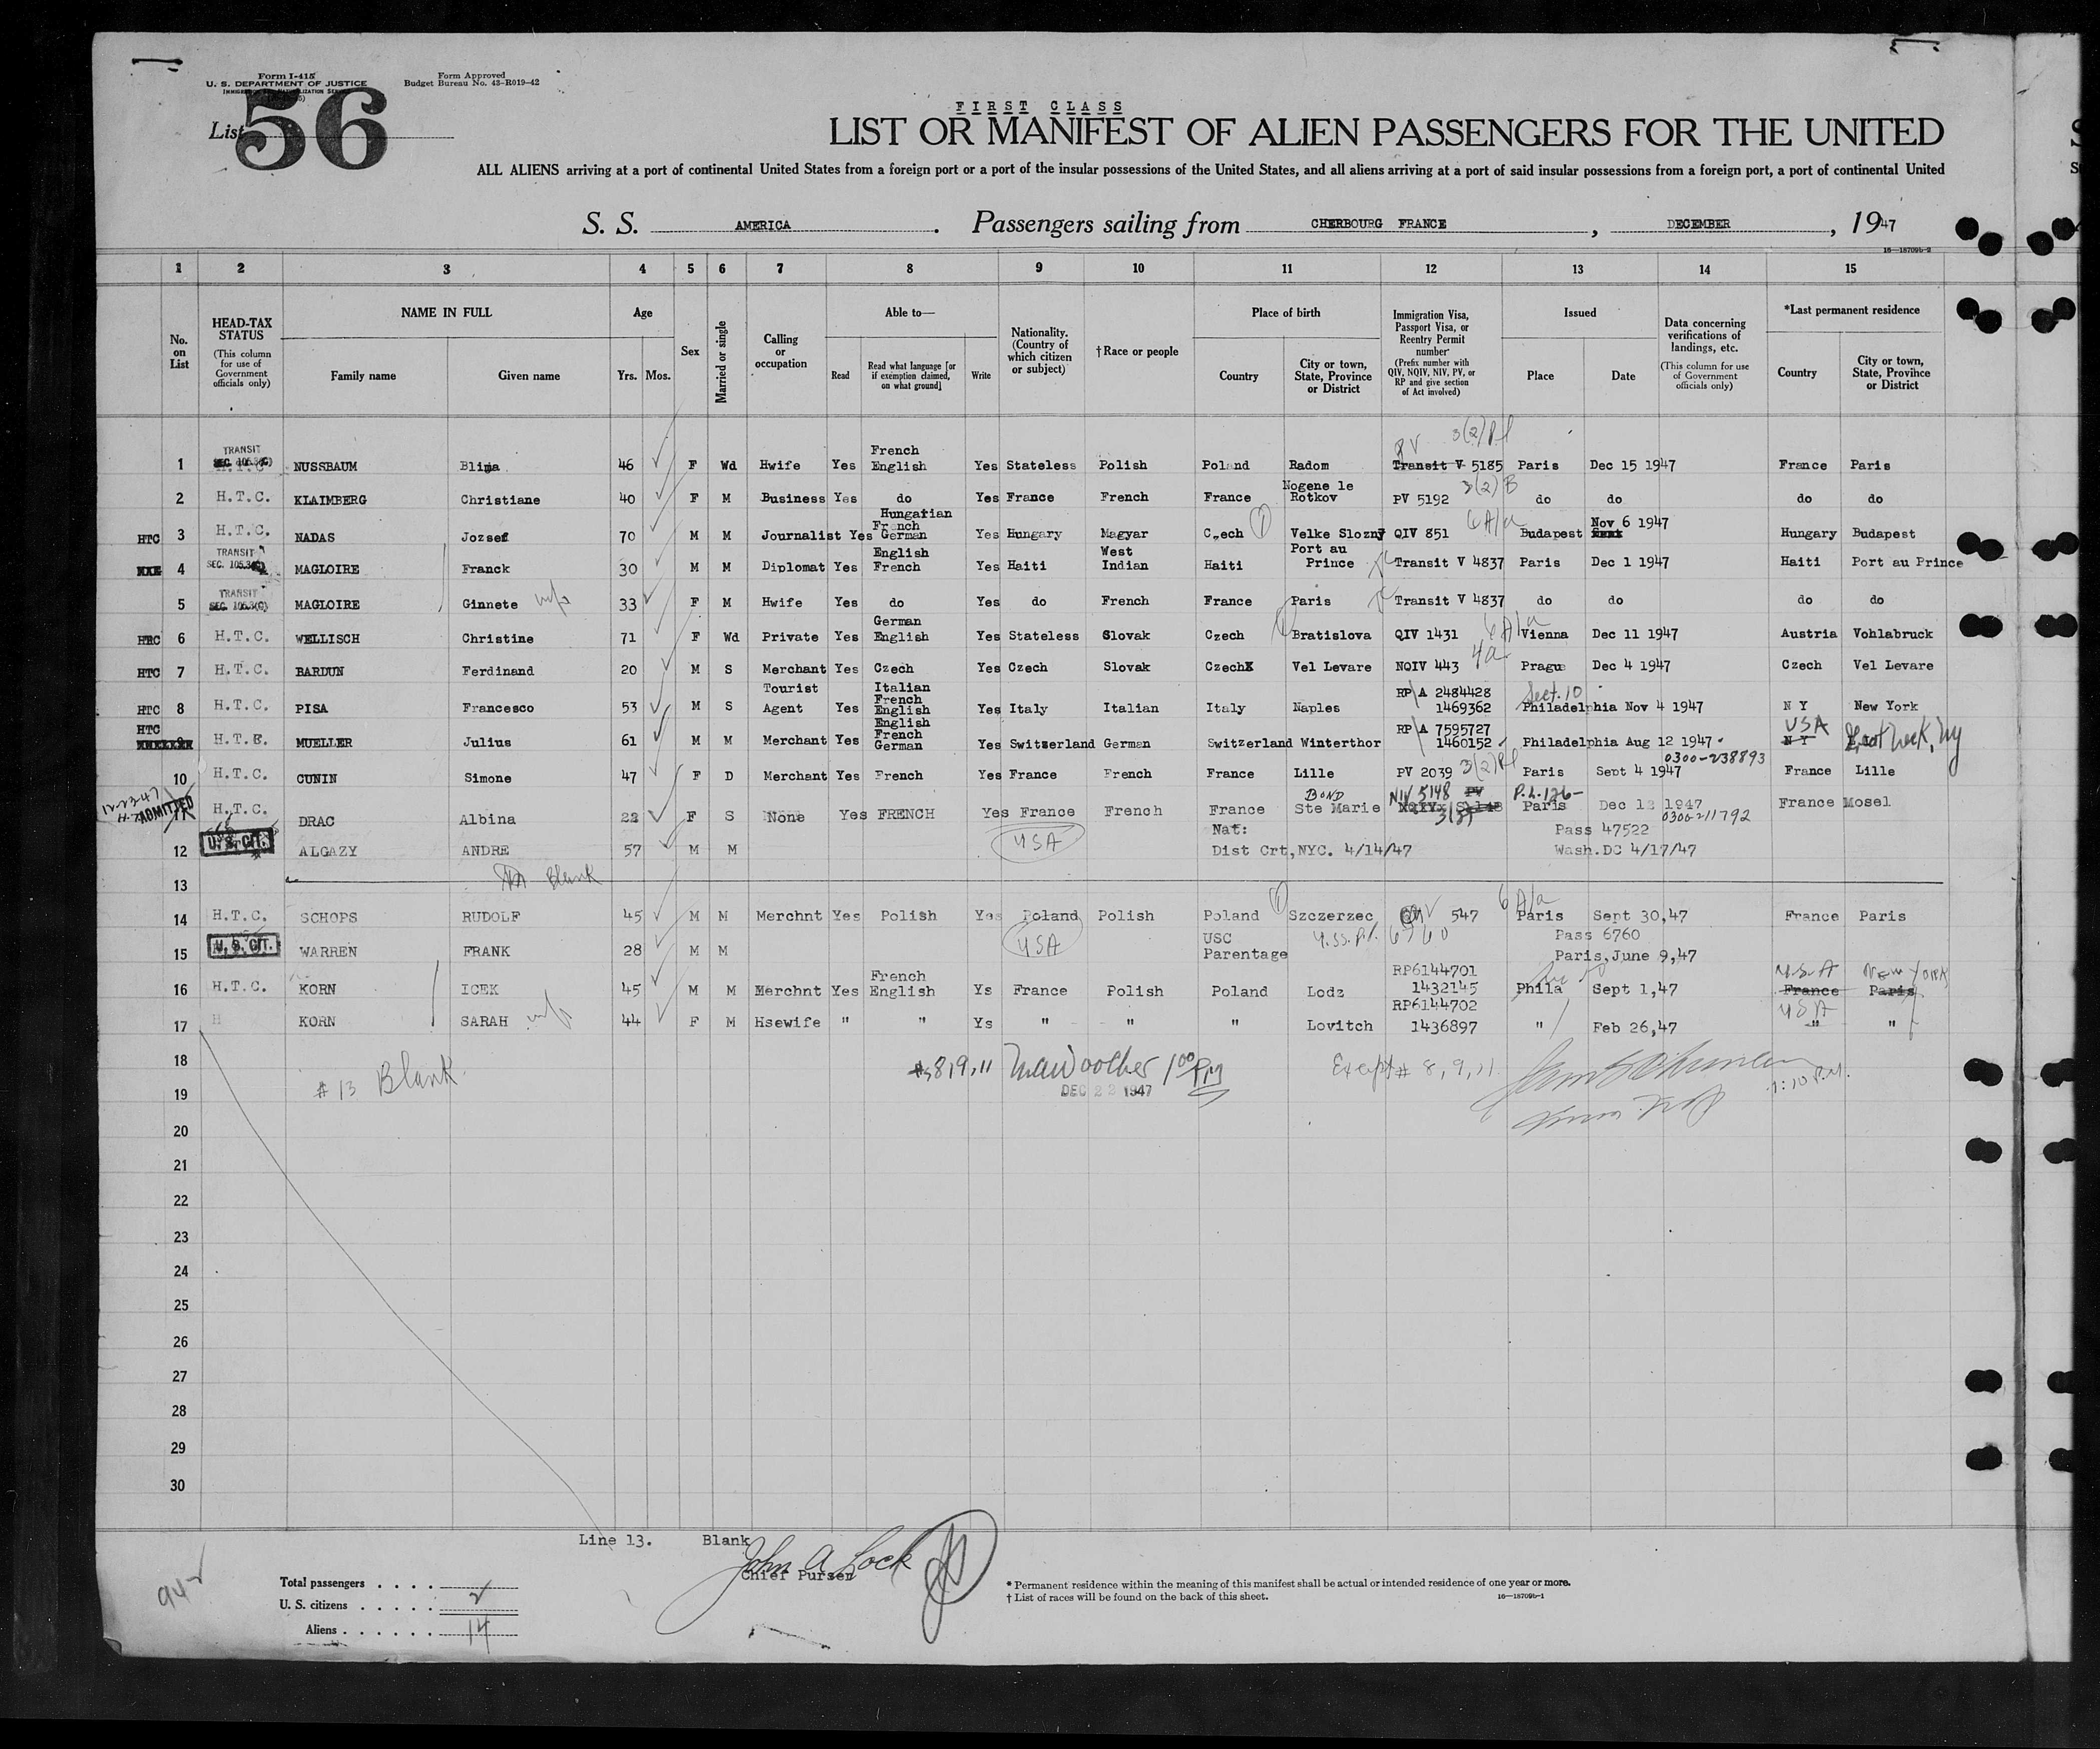 Form I-415
U. S. DEPARTMENT OF JUSTICE
Form Approved
Budget Bureau No. 43-R019-42
List 56
FIRST CLASS
LIST OR MANIFEST OF ALIEN PASSENGERS FOR THE UNITED
ALL ALIENS arriving at a port of continental United States from a foreign port or a port of the insular possessions of the United States, and all aliens arriving at a port of said insular possessions from a foreign port, a port of continental United
S. S. AMERICA . Passengers sailing from CHERBOURG FRANCE , DECEMBER , 1947
16—18709b-2
1 2 3 4 5 6 7 8 9 10 11 12 13 14 15
No. on List
HEAD-TAX STATUS (This column for use of Government officials only)
NAME IN FULL
Family name Given name
Age
Yrs. Mos.
Sex
Married or single
Calling or occupation
Able to—
Read Read what language [or if exemption claimed, on what ground] Write
Nationality. (Country of which citizen or subject)
†Race or people
Place of birth
Country City or town, State, Province or District
Immigration Visa, Passport Visa, or Reentry Permit number (Prefix number with QIV, NQIV, NIV, PV, or RP and give section of Act involved)
Issued
Place Date
Data concerning verifications of landings, etc. (This column for use of Government officials only)
*Last permanent residence
Country City or town, State, Province or District
PV 3(2)
1 TRANSIT SEC. 105.3(C) NUSSBAUM Blima 46 F Wd Hwife Yes French English Yes Stateless Polish Poland Radom Transit V 5185 Paris Dec 15 1947 France Paris
2 H.T.C. KLAIMBERG Christiane 40 F M Business Yes do Yes France French France Nogene le Rotkov PV 5192 3(2)B do do do do
HTC 3 H.T.C. NADAS Jozsef 70 M M Journalist Yes Hungarian French German Yes Hungary Magyar Czech Velke Slozny QIV 851 6A/a Budapest Nov 6 1947 Hungary Budapest
4 TRANSIT SEC. 105.3 MAGLOIRE Franck 30 M M Diplomat Yes English French Yes Haiti West Indian Haiti Port au Prince Transit V 4837 Paris Dec 1 1947 Haiti Port au Prince
5 TRANSIT SEC. 105.3(C) MAGLOIRE Ginnete 33 F M Hwife Yes do Yes do French France Paris Transit V 4837 do do do do
HTC 6 H.T.C. WELLISCH Christine 71 F Wd Private Yes German English Yes Stateless Slovak Czech Bratislova QIV 1431 6A/a Vienna Dec 11 1947 Austria Vohlabruck
HTC 7 H.T.C. BARDUN Ferdinand 20 M S Merchant Yes Czech Yes Czech Slovak CzechX Vel Levare NQIV 443 4a Prague Dec 4 1947 Czech Vel Levare
HTC 8 H.T.C. PISA Francesco 53 M S Tourist Agent Yes Italian French English Yes Italy Italian Italy Naples RP A 2484428 1469362 Sect. 10 Philadelphia Nov 4 1947 N Y New York
HTC 9 H.T.C. MUELLER Julius 61 M M Merchant Yes English French German Yes Switzerland German Switzerland Winterthor RP A 7595727 1460152 Philadelphia Aug 12 1947 USA N Y Great Neck, Ny
10 H.T.C. CUNIN Simone 47 F D Merchant Yes French Yes France French France Lille PV 2039 3(2) Paris Sept 4 1947 0300-238893 France Lille
12-23-47 ADMITTED
11 H.T.C. DRAC Albina 22 F S None Yes FRENCH Yes France French France BOND Ste Marie NIV 5148 PV P.L. 126- Paris Dec 12 1947 0300-211792 France Mosel
12 U.S. CIT. ALGAZY ANDRE 57 M M USA Nat: Dist Crt,NYC. 4/14/47 Pass 47522 Wash.DC 4/17/47
13 Blank
14 H.T.C. SCHOPS RUDOLF 45 M M Merchnt Yes Polish Yes Poland Polish Poland Szczerzec 547 6A/a Paris Sept 30,47 France Paris
15 U.S. CIT. WARREN FRANK 28 M M USA USC Parentage 6760 Pass 6760 Paris,June 9,47
16 H.T.C. KORN ICEK 45 M M Merchnt Yes French English Ys France Polish Poland Lodz RP6144701 1432145 Phila Sept 1,47 U.S.A New York France Paris
17 H KORN SARAH 44 F M Hsewife " " Ys " " " Lovitch RP6144702 1436897 " Feb 26,47 USA " "
18
#13 Blank
#s 8,9,11 1 00 PM
DEC 22 1947
Except # 8,9,11
1:10 P.M.
19
20
21
22
23
24
25
26
27
28
29
30
Line 13. Blank
John A Lock
Chief Purser
942
Total passengers . . . .
U. S. citizens . . . . . 2
Aliens . . . . . . 14
* Permanent residence within the meaning of this manifest shall be actual or intended residence of one year or more.
† List of races will be found on the back of this sheet.
16—18709b-1